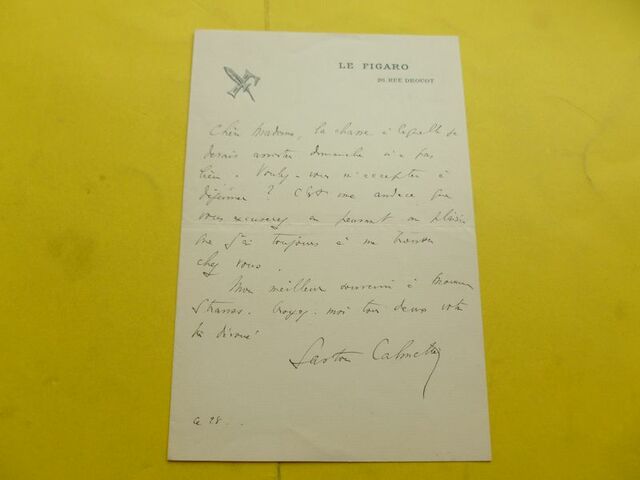 LE FIGARO
26, RUE DROUOT
Chère Madame, la chasse à laquelle je
devais assister dimanche n'a pas
lieu. Voulez-vous m'accepter à
déjeuner ? C'est une audace que
vous excuserez en pensant au plaisir
que j'ai toujours à me trouver
chez vous.
Mon meilleur souvenir à Monsieur
Strauss. Croyez-moi tous deux votre
dévoué
Gaston Calmette
Ce 28.